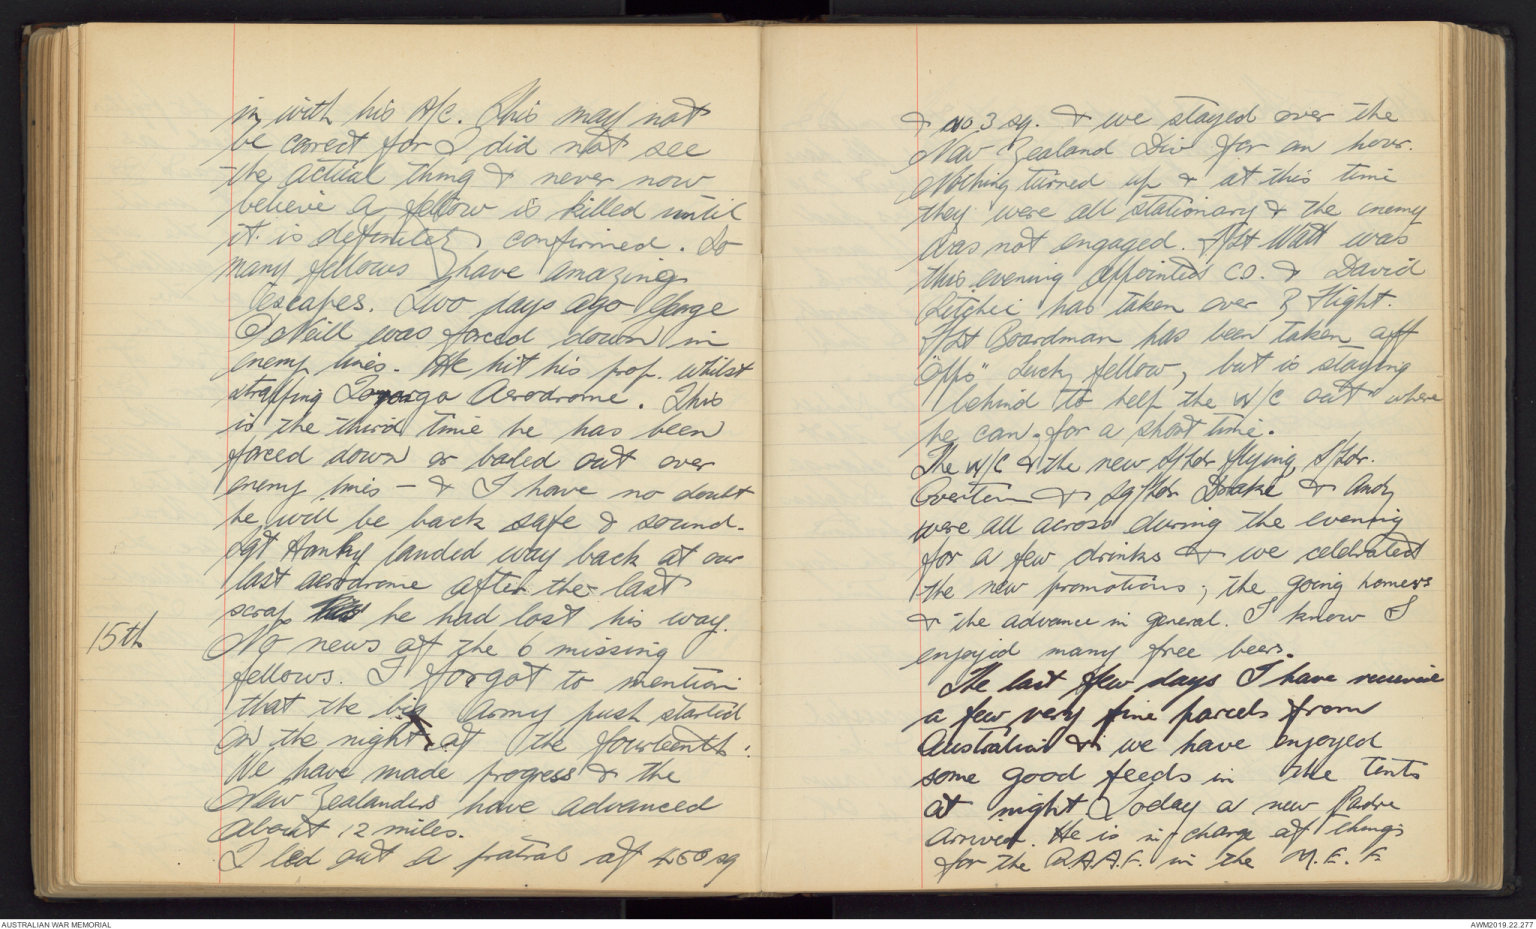 in with his A/C. This may not
be correct for I did not see
the actual thing & never now
believe a fellow is killed until
it is definitely confirmed. So
many fellows have amazing
escapes. Two days ago George
O'Neill was forced down in
enemy lines. He hit his prop. whilst
straffing Aerodrome. This
is the third time he has been
forced down or baled out over
enemy lines - & I have no doubt
he will be back safe & sound.
Sgt landed way back at our
last aerodrome after the last
scrap he had lost his way.
15th
No news of the 6 missing
fellows. I forgot to mention
that the big Army push started
on the night of the fourteenth.
We have made progress & the
New Zealanders have advanced
about 12 miles.
I led out a patrol of 450 sq
& No 3 sq. & we stayed over the
New Zealand Div for an hour.
Nothing turned up & at this time
they were all stationary & the enemy
was not engaged. F/Lt Watt was
this evening appointed C.O. & David
Ritchie has taken over B Flight.
F/Lt Boardman has been taken off
"Opps" Lucky fellow, but is staying
behind to help the W/C out where
he can, for a short time.
The W/C & the new S/Ldr flying, S/Ldr.
Overten & Sq/Ldr Drake & Andy
were all across during the evening
for a few drinks & we celebrated
the new promotions; the going homers
& the advance in general. I know I
enjoyed many free beers.
The last few days I have receive
a few very fine parcels from
Australia & we have enjoyed
some good feeds in the tents
at night. Today a new Padre
arrived. He is in charge of things
for the R.A.A.F. in the M.E.F.
AUSTRALIAN WAR MEMORIAL
AWM2019.22.277